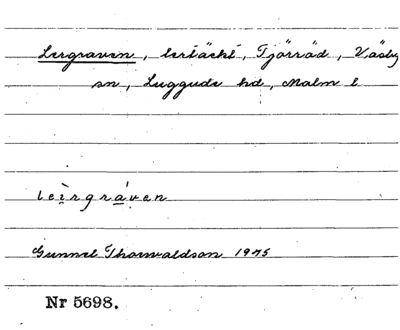 Lergraven, lertäckt, Tjörröd, Väsby
sn, Luggude hd, Malm l
leìrgráven
Gunnel Thorwaldson 1975
Nr 5698.